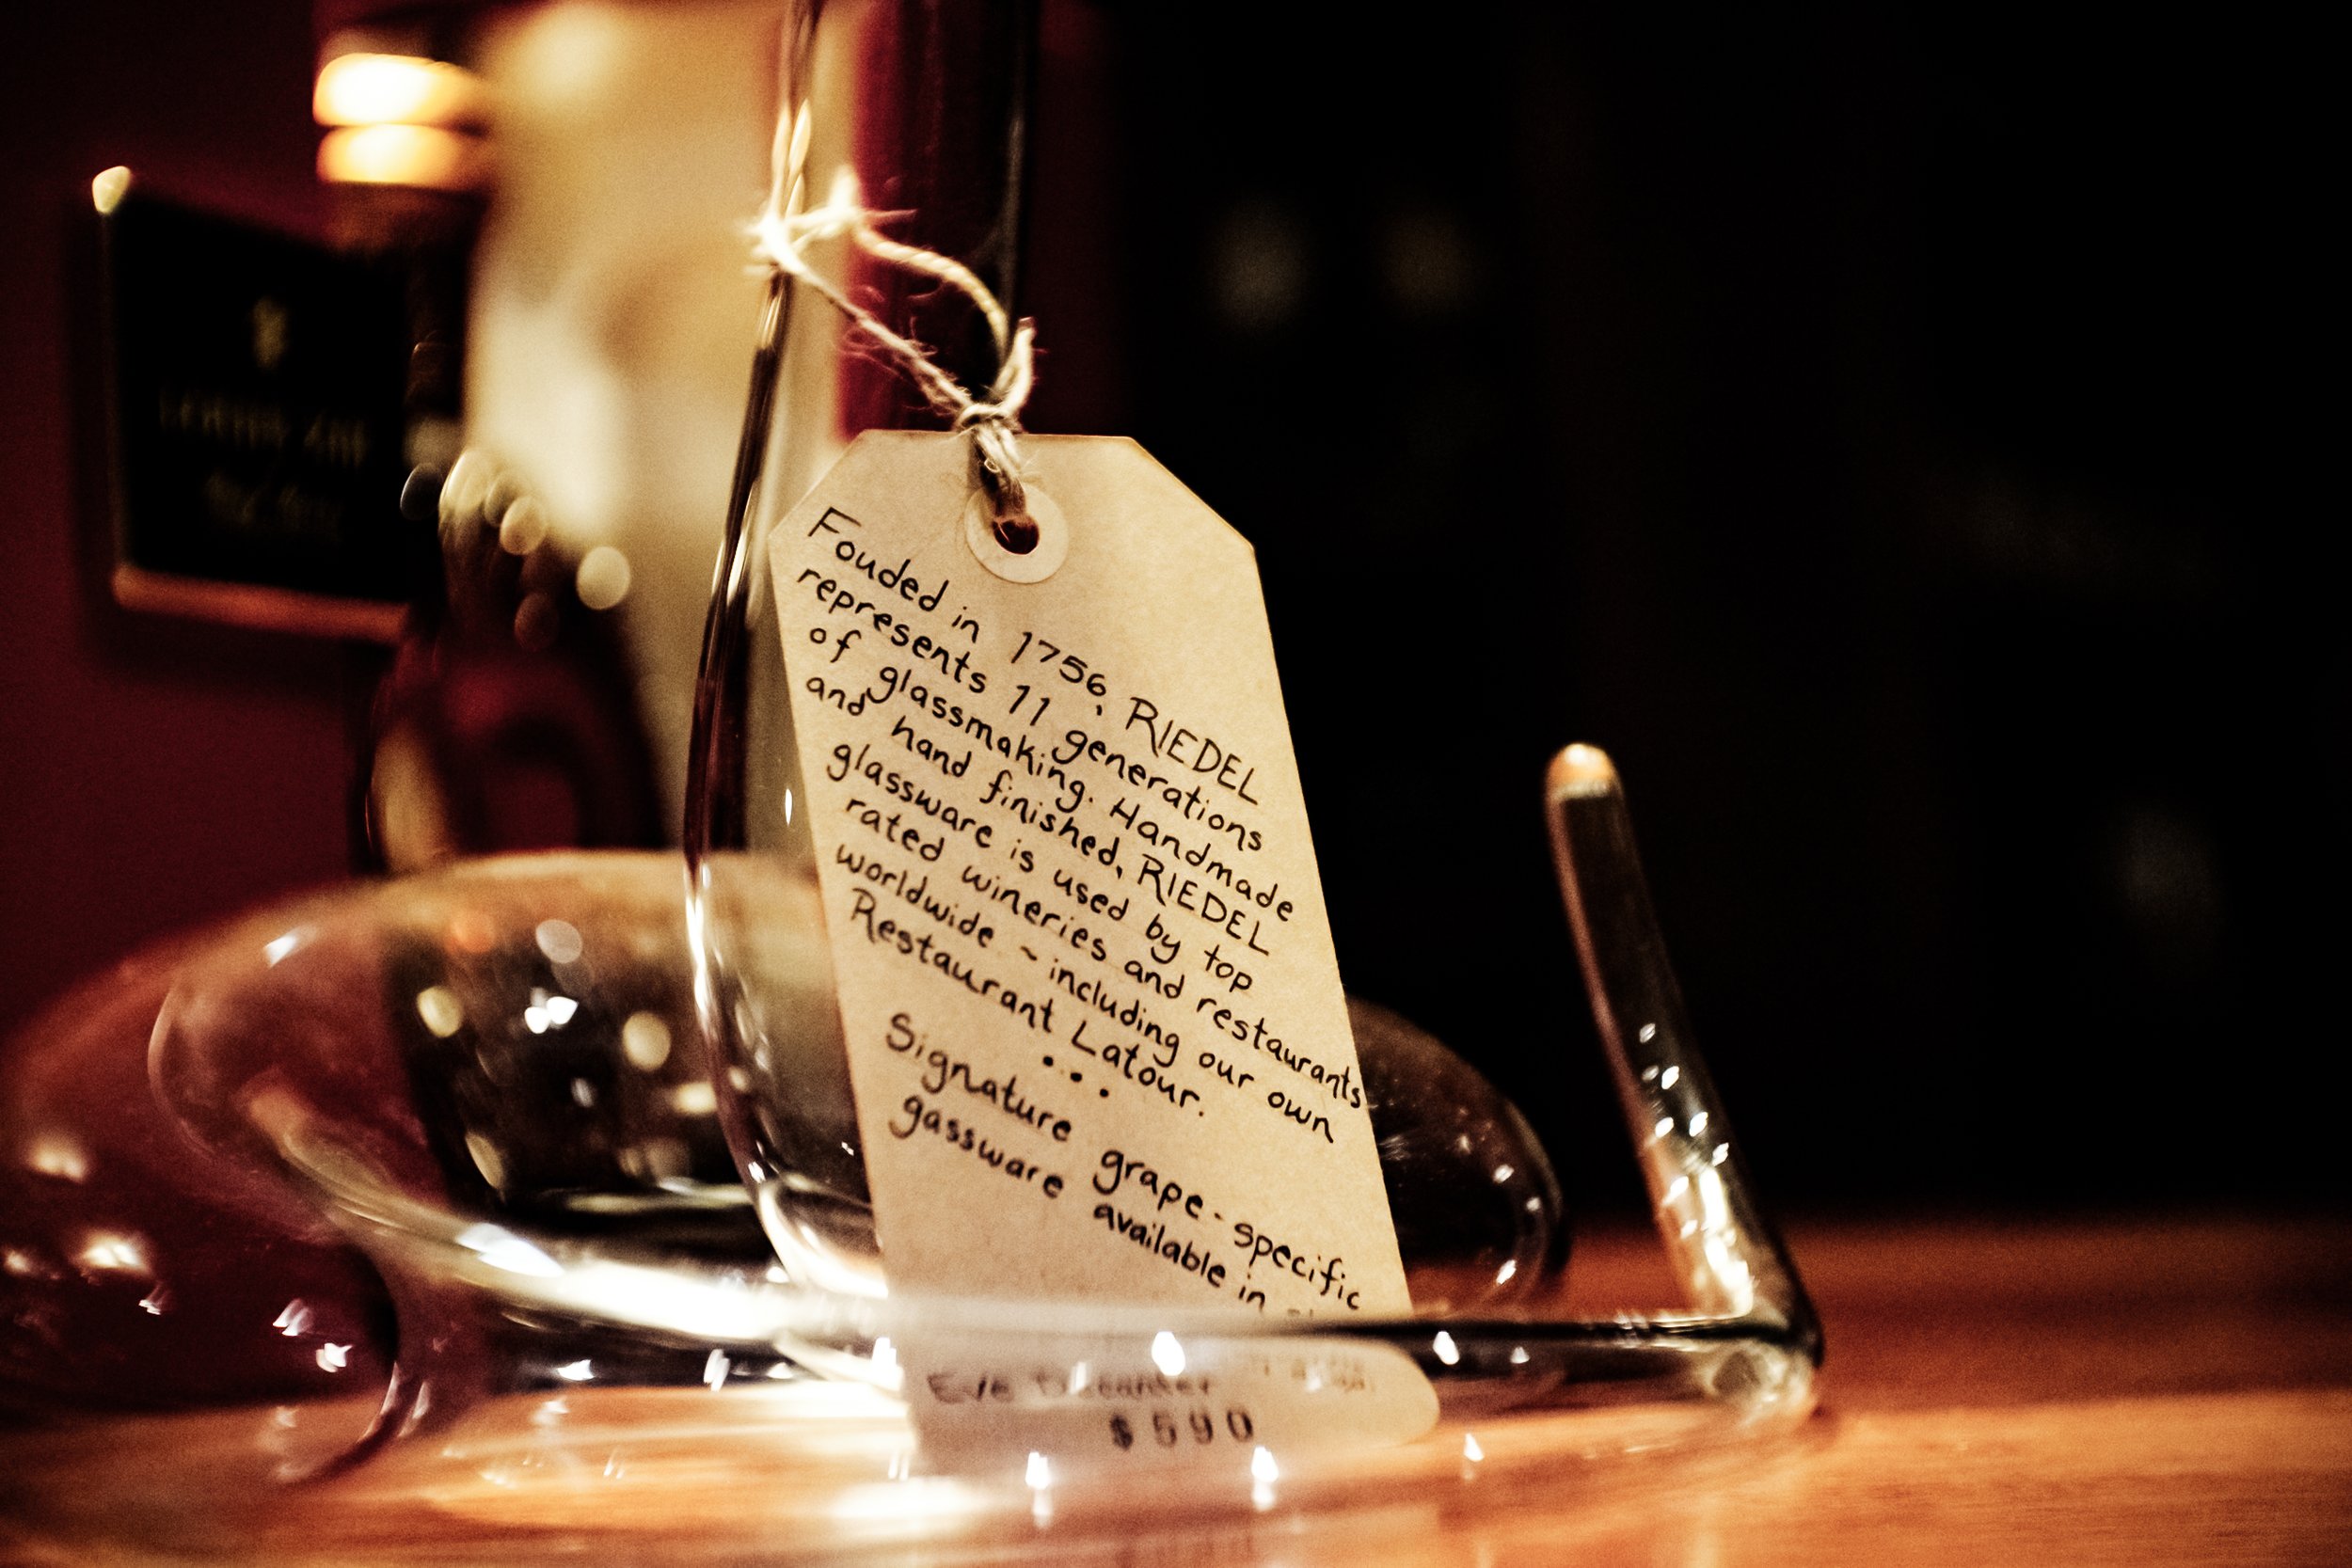 Fouded in 1756, RIEDEL
represents 11 generations
of glassmaking. Handmade
and hand finished, RIEDEL
glassware is used by top
rated wineries and restaurants
worldwide ~ including our own
Restaurant Latour.
...
Signature grape-specific
gassware available in
Eve Decanter
$590